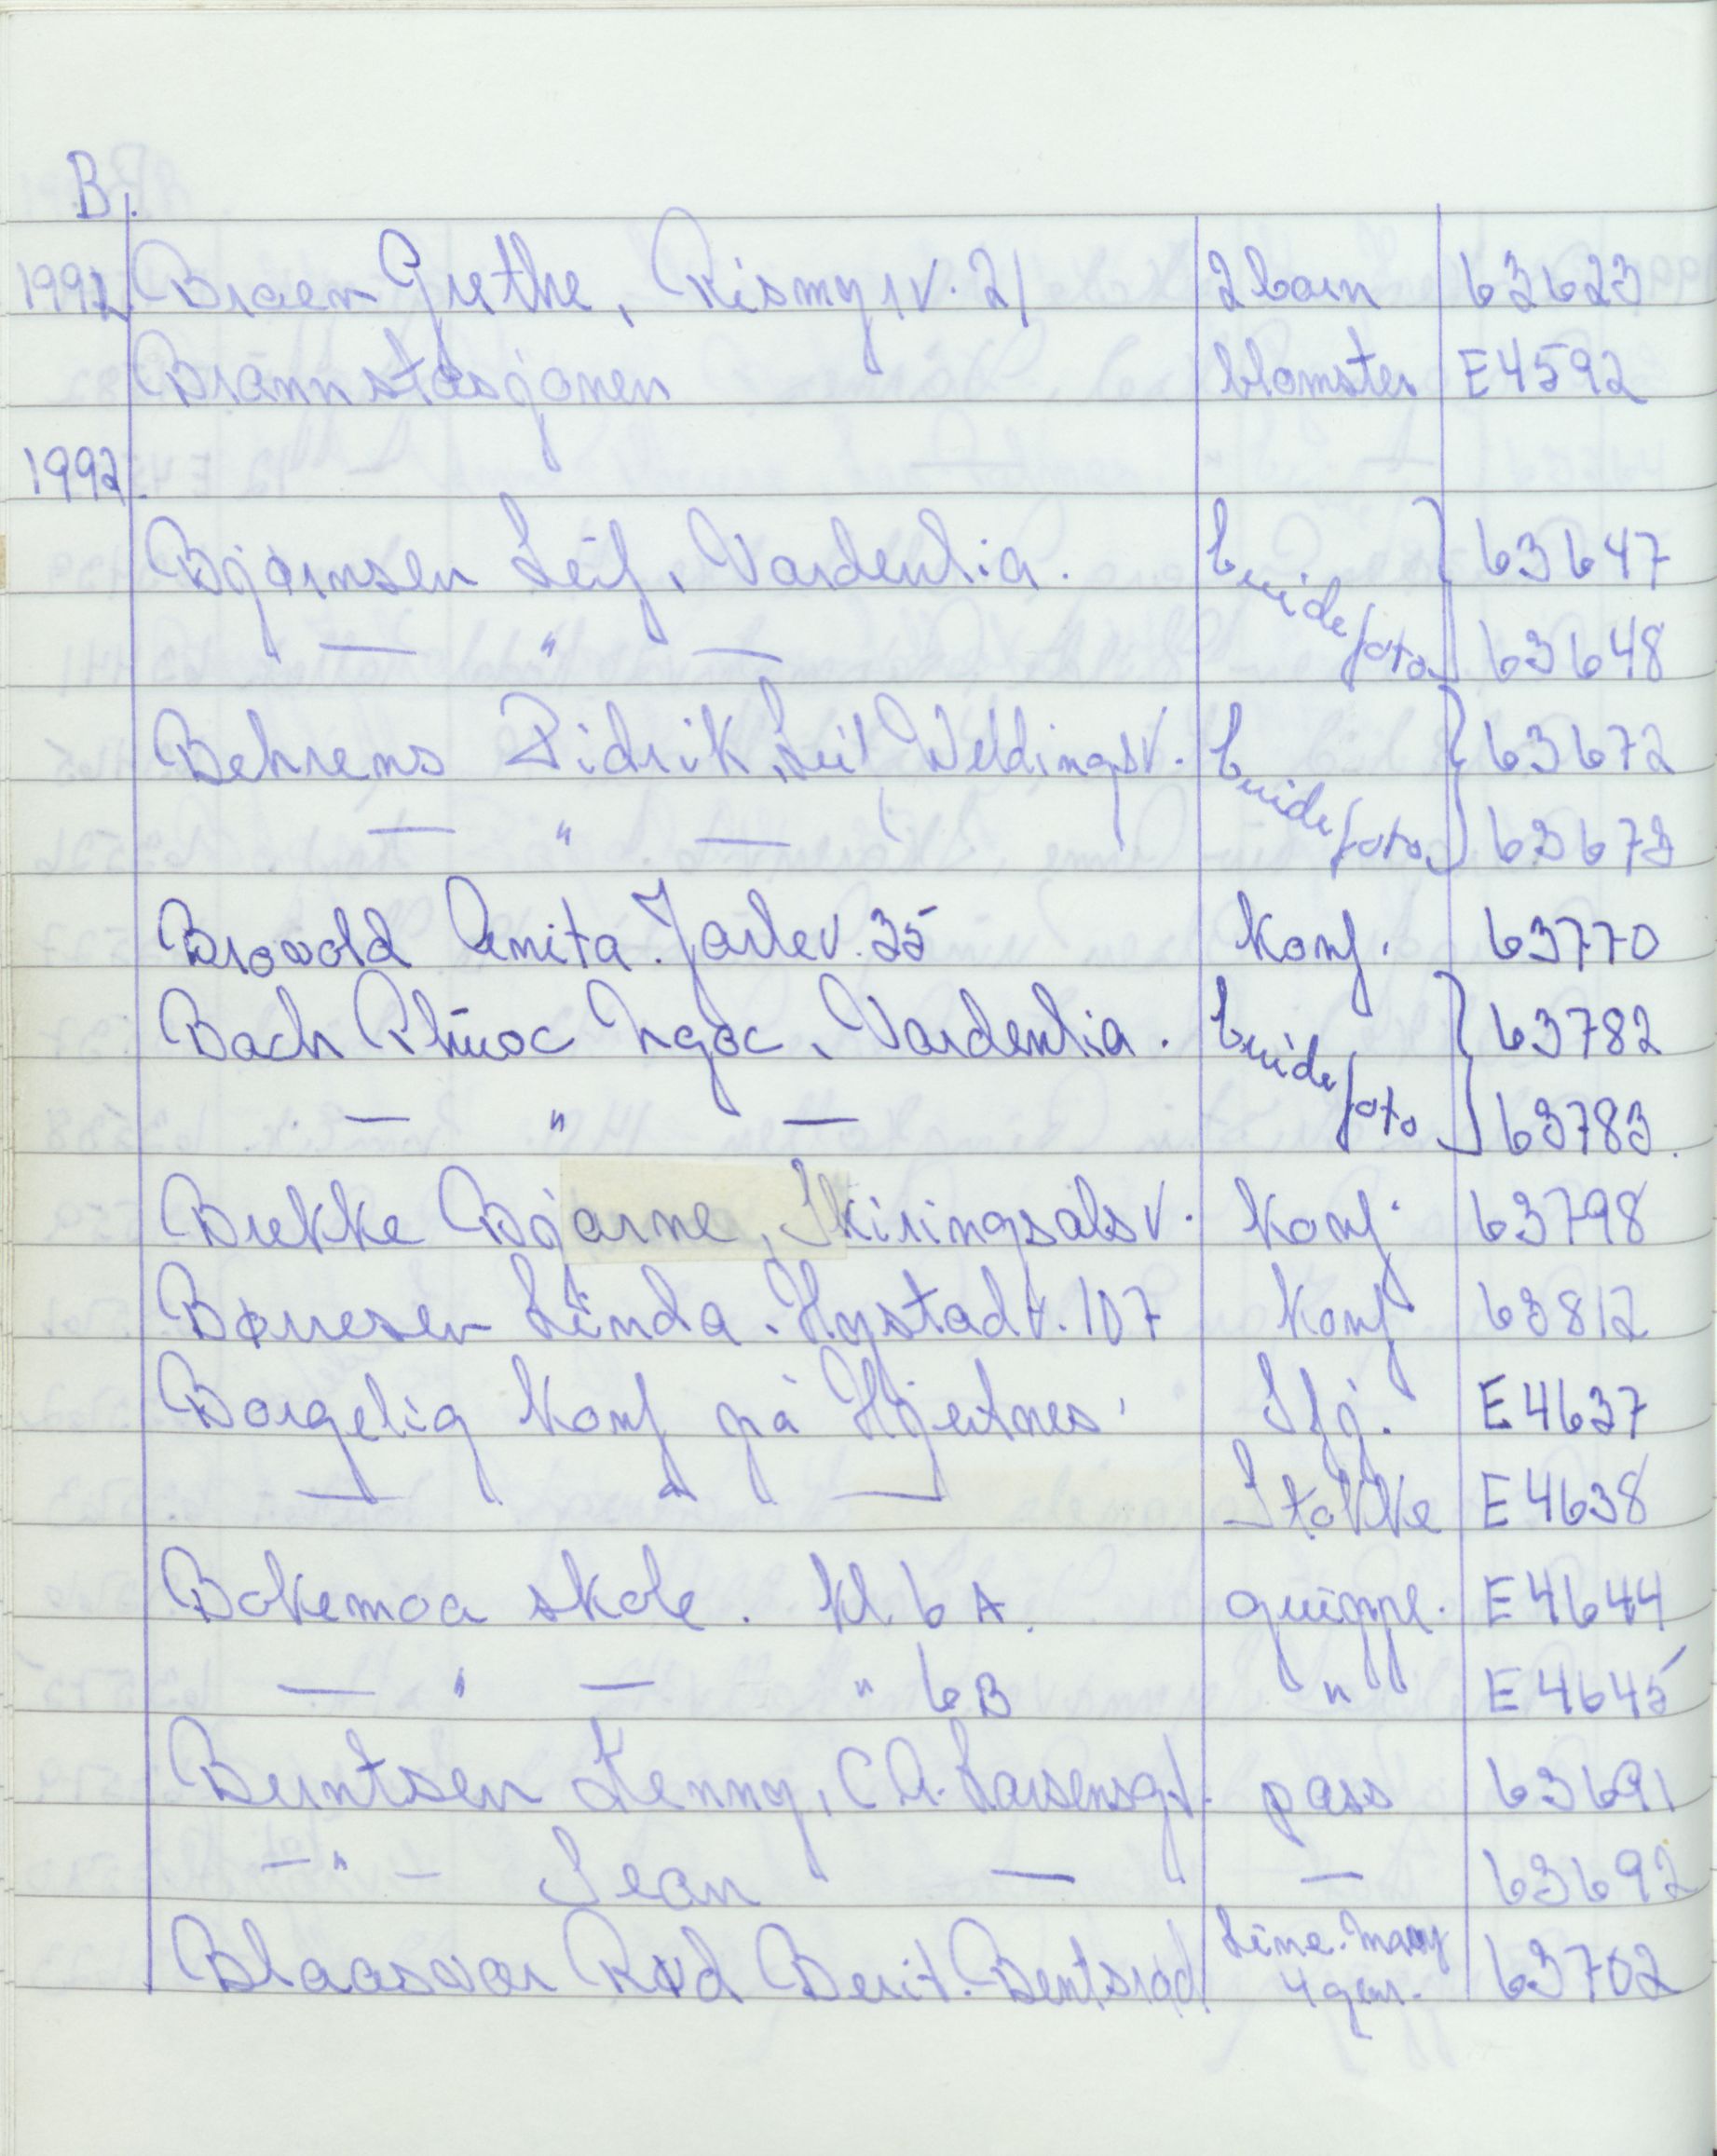 B.
1992 Braen Grethe, Rismyrv. 21 2 barn 63623
Brannstasjonen blomster E4592
1992.
Bjørnsen Leif, Vardenlia. brudefoto 63647
— " — 63648
Behrens Didrik, Leif Weldingsv. brudefoto 63672
— " — 63673
Brovold Anita. Jarlev. 35 Konf. 63770
Bach Phuoc Ngoc, Vardenlia. brudefoto 63782
— " — 63783.
Brekke Bjarne, Skiringsalsv. Konf. 63798
Børresen Linda. Hystadv. 107 Konf 63812
Borgelig Konf på Hjertnes. Sfj. E4637
— " — Stokke E4638
Bokemoa skole. kl. 6 A. gruppe. E4644
— " — " 6B " E4645
Berntsen Kenny, C A. Larsensgt. pass 63691
— " — Sean — — 63692
Blaasvær Rød Berit. Bentsrød Line. Mary 63702
4 gen.